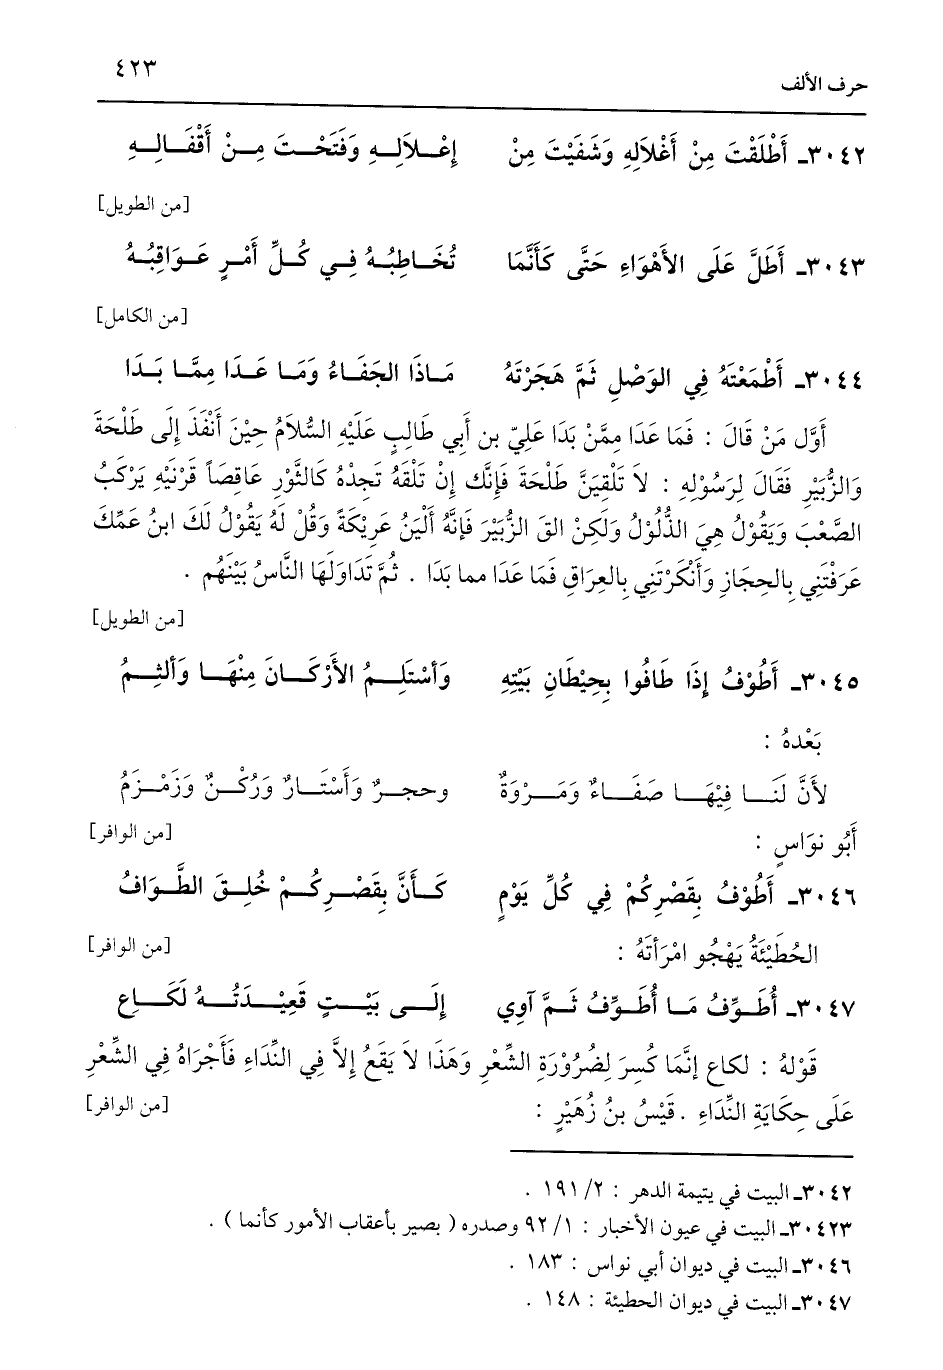 حرف الألف
٤٢٣
٣٠٤٢ـ أَطْلَقْتَ مِنْ أَغْلاَلِهِ وَشَفَيْتَ مِنْ إِعْـلاَلِـهِ وَفَتَحْـتَ مِـنْ أَقْفَـالِـهِ
[من الطويل]
٣٠٤٣ـ أَطَلَّ عَلَى الأَهْوَاءِ حَتَّى كَأَنَّمَا تُخَـاطِبُـهُ فِـي كُـلِّ أَمْـرٍ عَـوَاقِبُـهُ
[من الكامل]
٣٠٤٤ـ أَطْمَعْتَهُ فِي الوَصْلِ ثمَّ هَجَرْتَهُ مَـاذَا الجَفَـاءُ وَمَـا عَـدَا مِمَّـا بَـدَا
أَوَّل مَنْ قَالَ : فَمَا عَدَا مِمَّنْ بَدَا عَلِيّ بن أَبي طَالِبٍ عَلَيْهِ السُّلاَمُ حِيْنَ أَنْفَذَ إِلَى طَلْحَةَ
وَالزُّبَيْرِ فَقَالَ لِرَسُوْلِهِ : لاَ تَلْقِيَنَّ طَلْحَةَ فَإِنَّك إِنْ تَلْقَهُ تَجِدْهُ كَالثَّوْرِ عَاقِصَاً قَرْنَيْهِ يَرْكَبُ
الصَّعْبَ وَيَقُوْلُ هِيَ الذُّلُوْلُ وَلَكِنْ القَ الزُّبَيْرَ فَإِنَّهُ أَلْيَنُ عَرِيْكَةً وَقُلْ لَهُ يَقُوْلُ لَكَ ابنُ عَمِّكَ
عَرَفْتَنِي بِالحِجَازِ وَأَنْكَرْتَنِي بِالعِرَاقِ فَمَا عَدَا مما بَدَا . ثُمَّ تَدَاوَلَهَا النَّاسُ بَيْنَهُم .
[من الطويل]
٣٠٤٥ـ أَطُوْفُ إِذَا طَافُوا بِحِيْطَانِ بَيْتِهِ وَأَسْتَلِـمُ الأَرْكَـانَ مِنْهَـا وَألثِـمُ
بَعْدهُ :
لأَنَّ لَنَـا فِيْهَـا صَفَـاءٌ وَمَـرْوَةٌ وحجـرٌ وَأَسْتَـارٌ وَرُكْـنٌ وَزَمْـزَمُ
أَبُو نوَاسٍ :
[من الوافر]
٣٠٤٦ـ أَطُوْفُ بِقَصْرِكُمْ فِي كُلِّ يَوْمٍ كَـأَنَّ بِقَصْـرِكُـمْ خُلِـقَ الطَّـوَافُ
الحُطَيْئَةُ يَهْجُو امْرَأتَهُ :
[من الوافر]
٣٠٤٧ـ أُطَـوِّفُ مَـا أُطَـوِّفُ ثـمَّ آوِي إِلَـى بَيْـتٍ قَعِيْـدَتُـهُ لَكَـاعِ
قَوْلهُ : لكاعِ إِنَّمَا كُسِرَ لِضُرُوْرَةِ الشِّعْرِ وَهَذَا لاَ يَقَعُ إِلاَّ فِي النِّدَاءِ فَأَجْرَاهُ فِي الشِّعْرِ
عَلَى حِكَايَةِ النِّدَاءِ . قَيْسُ بنُ زُهَيْرٍ :
[من الوافر]
٣٠٤٢ـ البيت في يتيمة الدهر : ٢/ ١٩١ .
٣٠٤٢٣ـ البيت في عيون الأخبار : ١/ ٩٢ وصدره ( بصير بأعقاب الأمور كأنما ) .
٣٠٤٦ـ البيت في ديوان أبي نواس : ١٨٣ .
٣٠٤٧ـ البيت في ديوان الحطيئة : ١٤٨ .